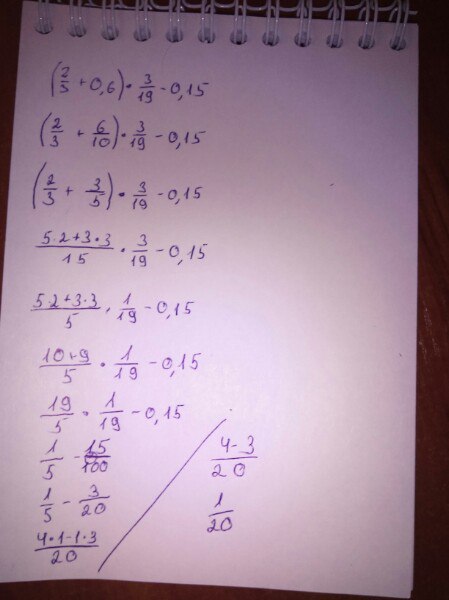 (2/3 + 0,6) · 3/19 - 0,15
(2/3 + 6/10) · 3/19 - 0,15
(2/3 + 3/5) · 3/19 - 0,15
5·2+3·3/15 · 3/19 - 0,15
5·2+3·3/5 · 1/19 - 0,15
10+9/5 · 1/19 - 0,15
19/5 · 1/19 - 0,15
1/5 - 15/100
1/5 - 3/20
4·1-1·3/20
4-3/20
1/20